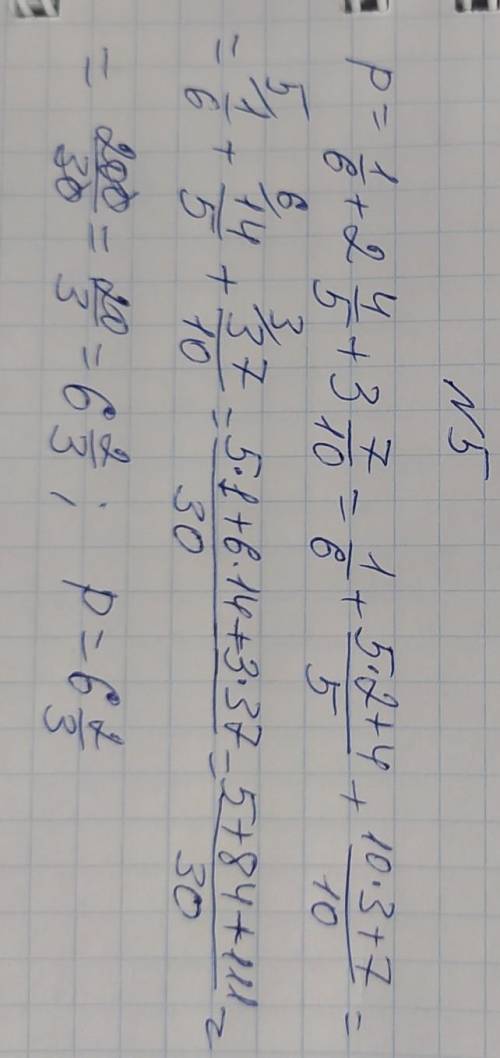 N5
p = 1/6 + 2 4/5 + 3 7/10 = 1/6 + (5·2+4)/5 + (10·3+7)/10 =
= 5/ 1/6 + 6/ 14/5 + 3/ 37/10 = (5·1+6·14+3·37)/30 = (5+84+111)/30 =
= 200/30 = 20/3 = 6 2/3; p = 6 2/3